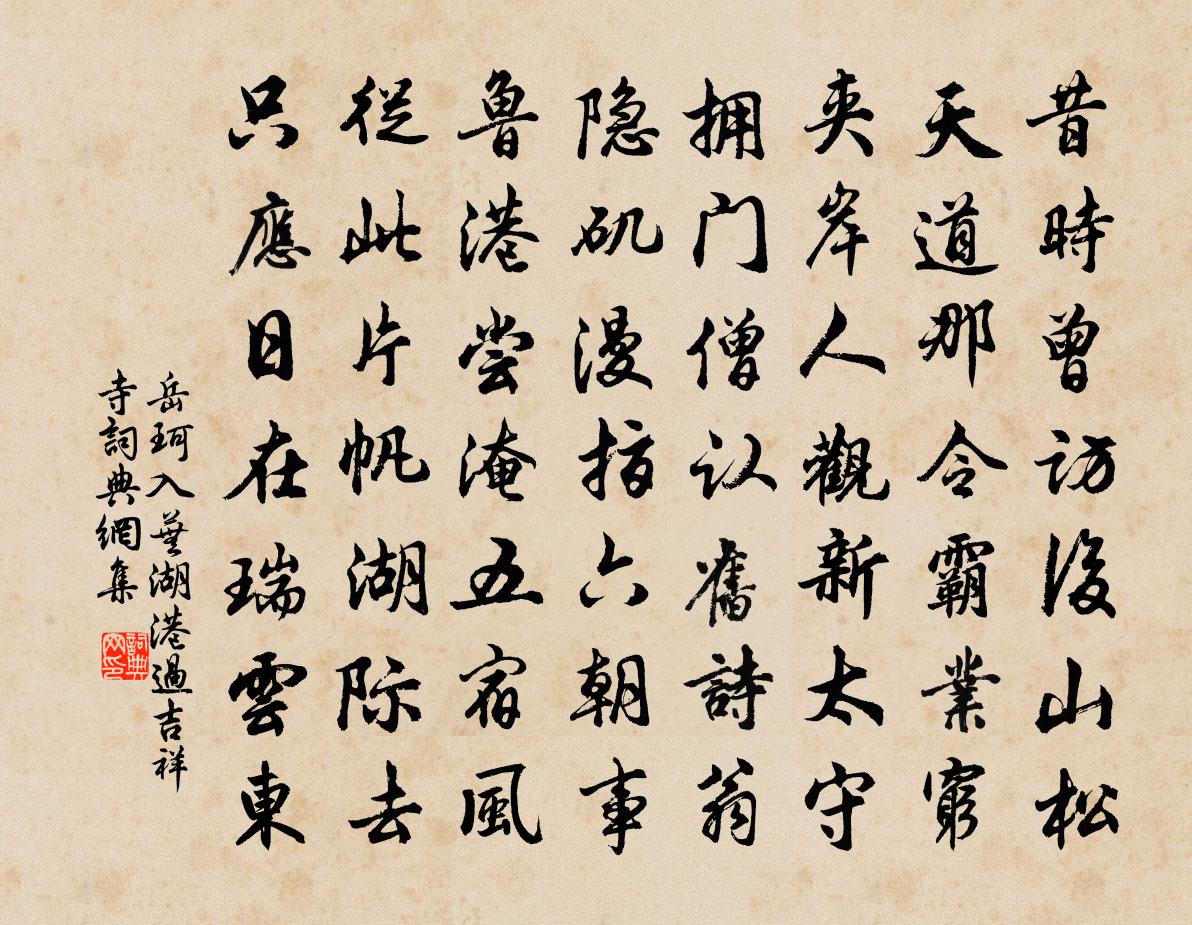 昔時曾訪後山松
天道那令霸業窮
夾岸人觀新太守
拥门僧认舊詩翁
隐矶漫指六朝事
魯港尝淹五宿風
從此片帆湖际去
只應日在瑞雲東
岳珂入華湖港過吉祥
寺詞典網集
詞典网印